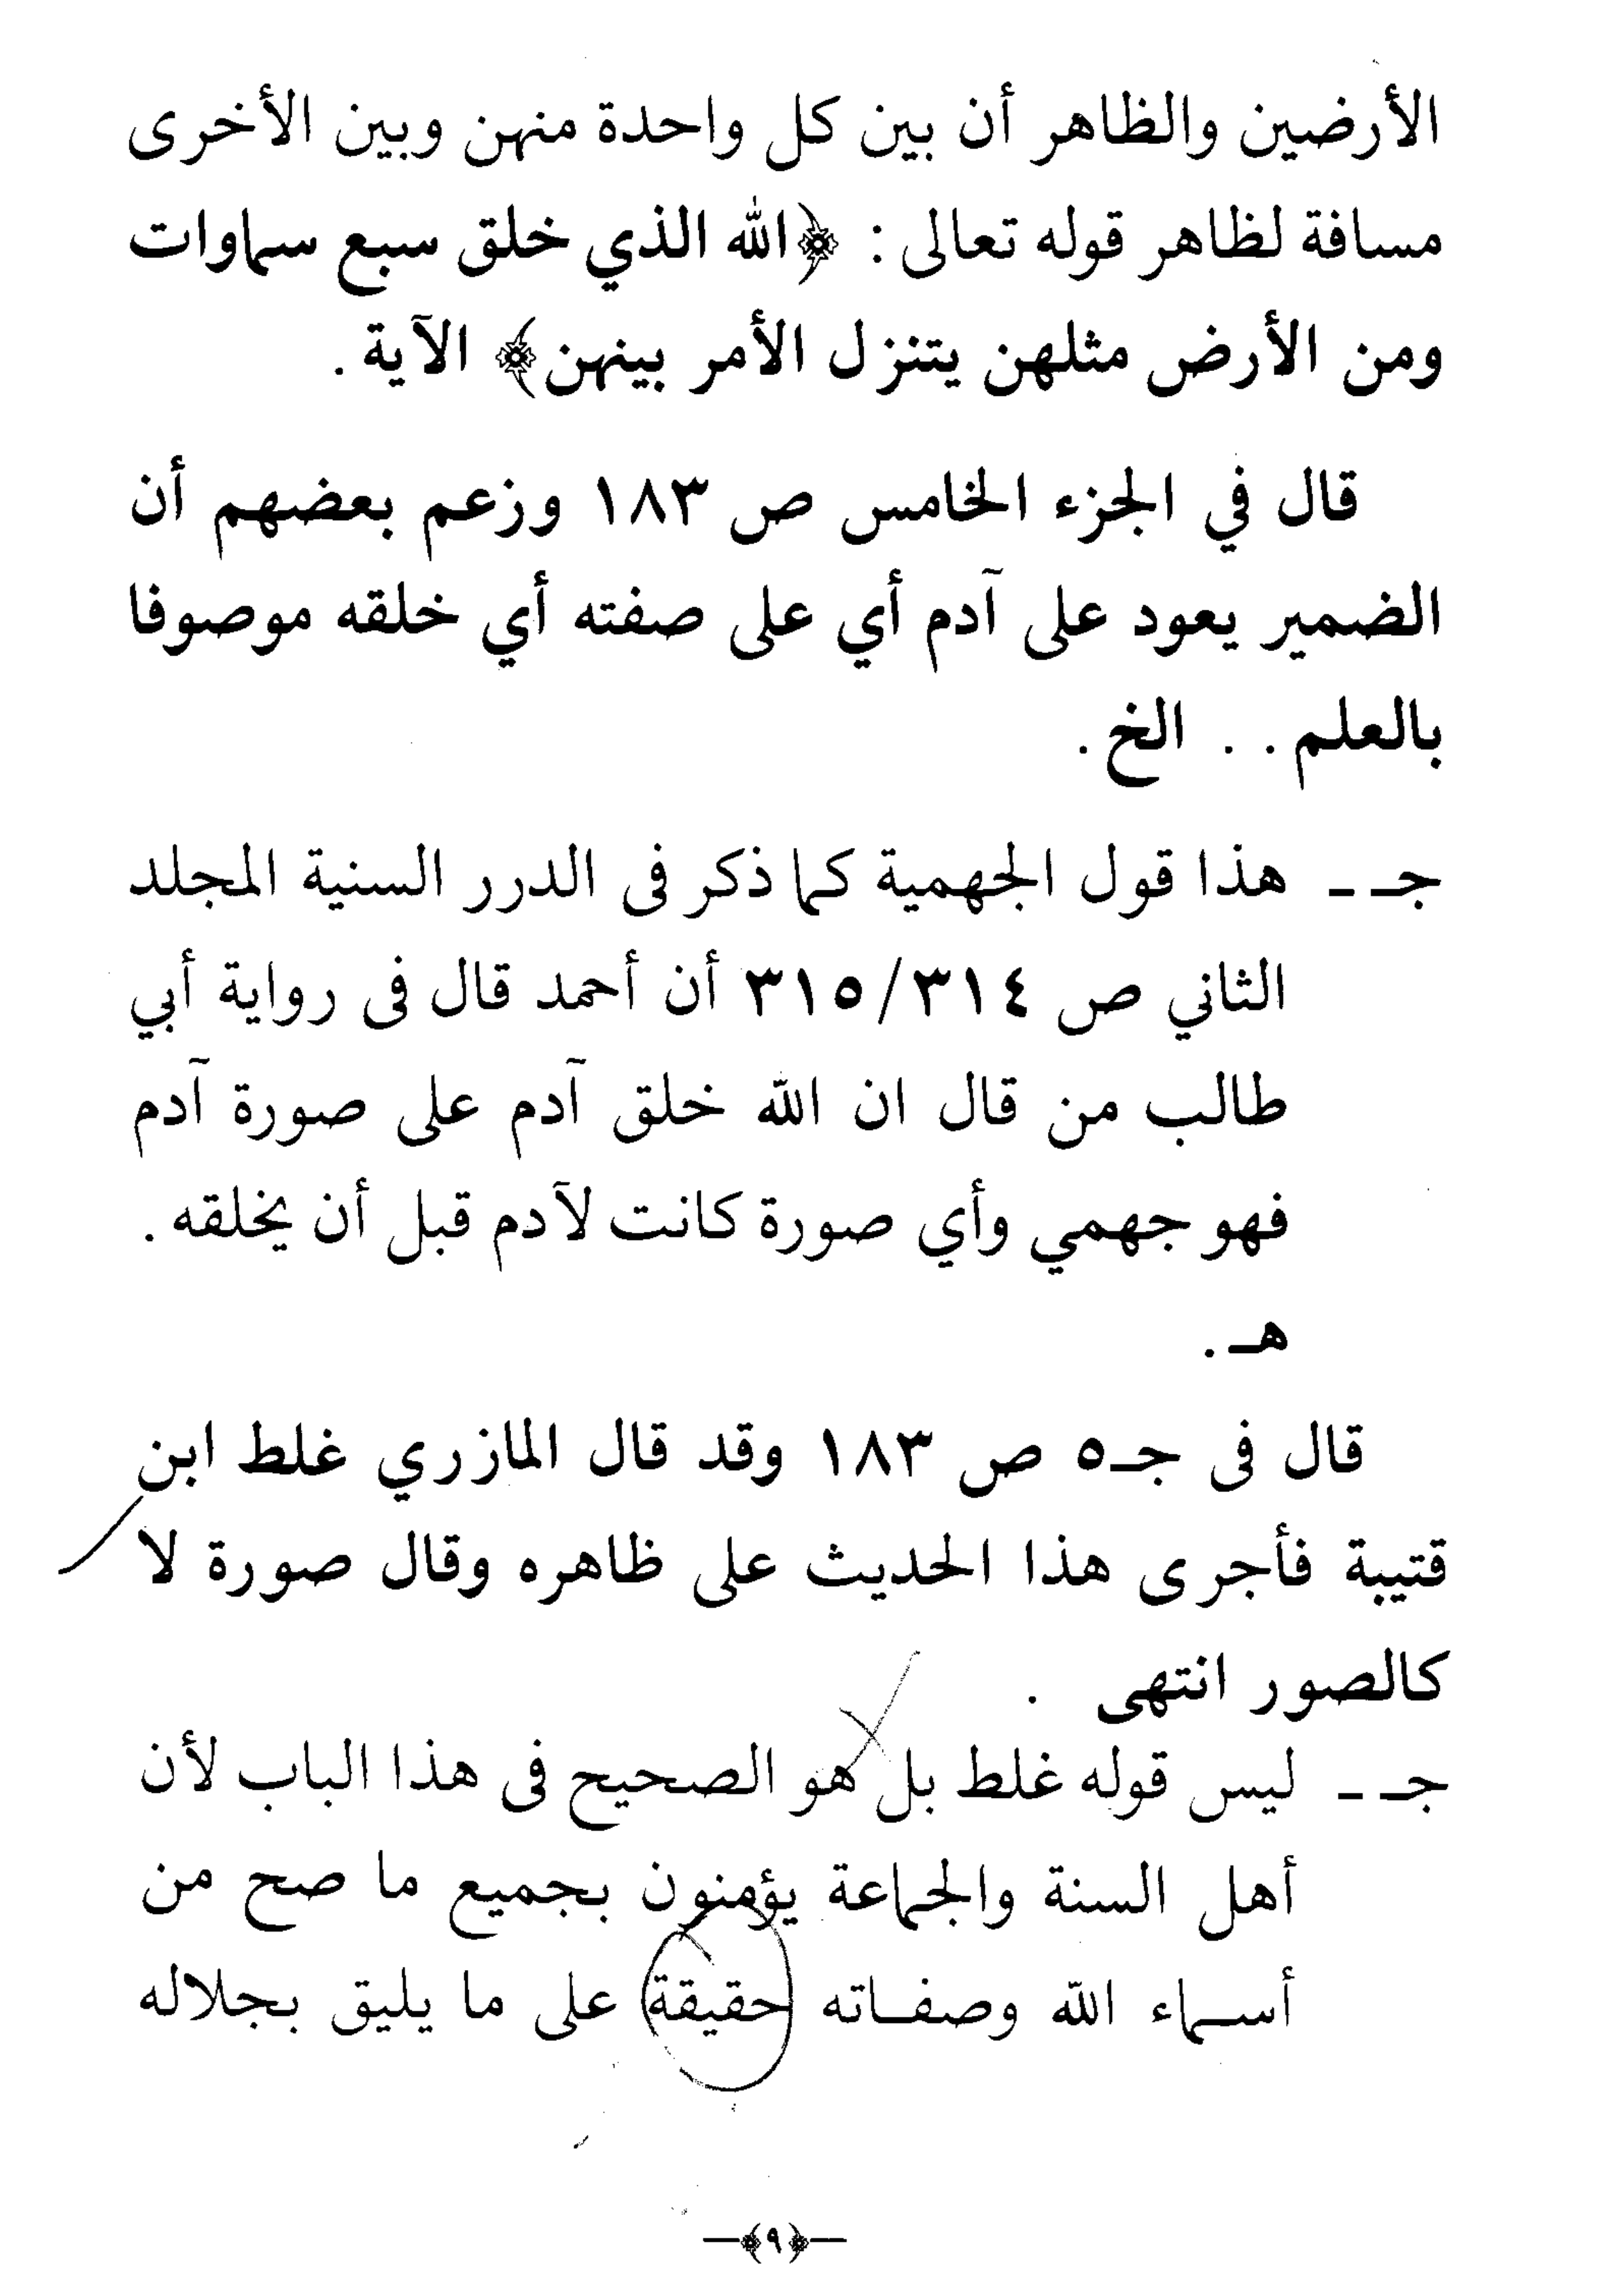 الأرضين والظاهر أن بين كل واحدة منهن وبين الأخرى
مسافة لظاهر قوله تعالى : ﴿الله الذي خلق سبع سماوات
ومن الأرض مثلهن يتنزل الأمر بينهن﴾ الآية .
قال في الجزء الخامس ص ١٨٣ وزعم بعضهم أن
الضمير يعود على آدم أي على صفته أي خلقه موصوفا
بالعلم . . الخ .
جـ ـ هذا قول الجهمية كما ذكر فى الدرر السنية المجلد
الثاني ص ٣١٥/٣١٤ أن أحمد قال فى رواية أبي
طالب من قال ان الله خلق آدم على صورة آدم
فهو جهمي وأي صورة كانت لآدم قبل أن يخلقه .
هـ .
قال فى جـ٥ ص ١٨٣ وقد قال المازري غلط ابن
قتيبة فأجرى هذا الحديث على ظاهره وقال صورة لا
كالصور انتهى .
جـ ـ ليس قوله غلط بل هو الصحيح فى هذا الباب لأن
أهل السنة والجماعة يؤمنون بجميع ما صح من
أسماء الله وصفاته (حقيقة) على ما يليق بجلاله
﴿٩﴾